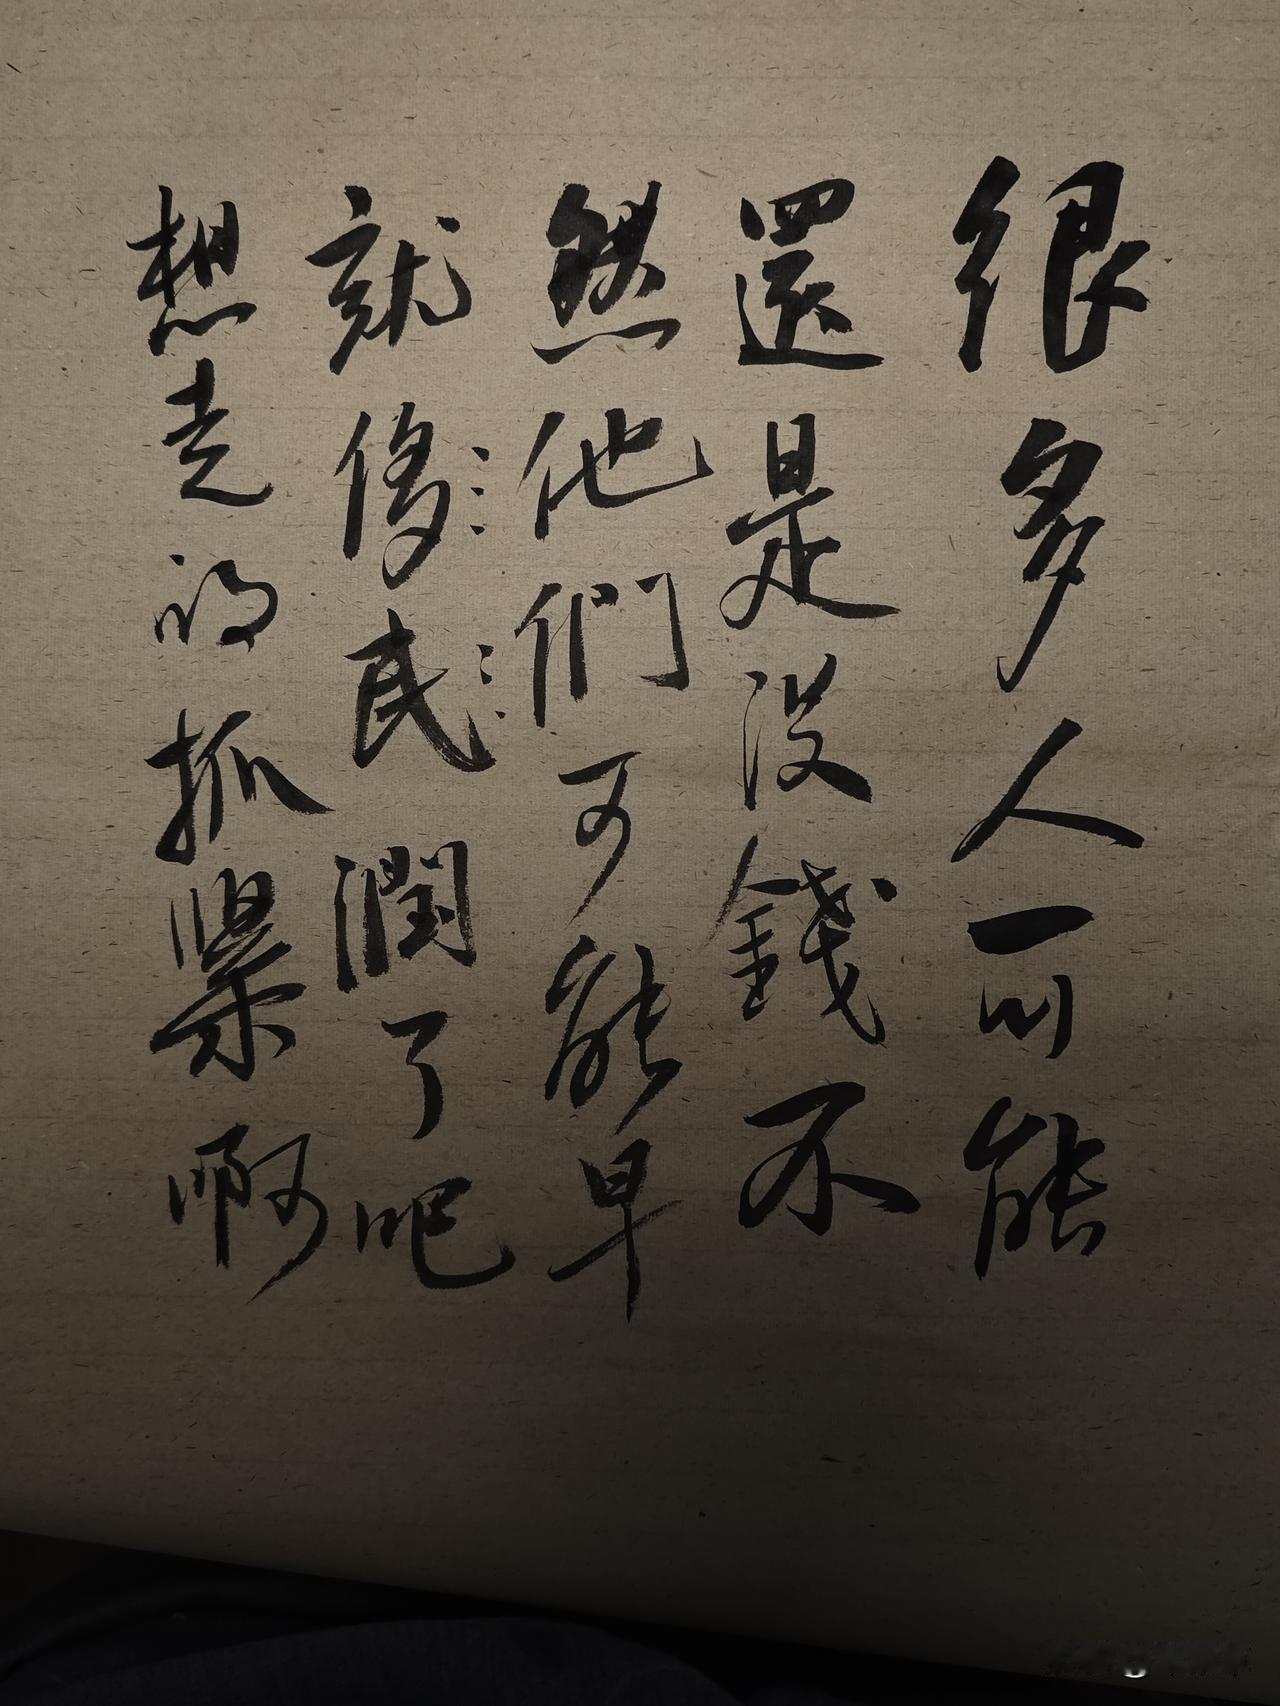 很多人可能
還是沒錢不
然他們可能早
就侈民潤了吧
想走的抓緊啊